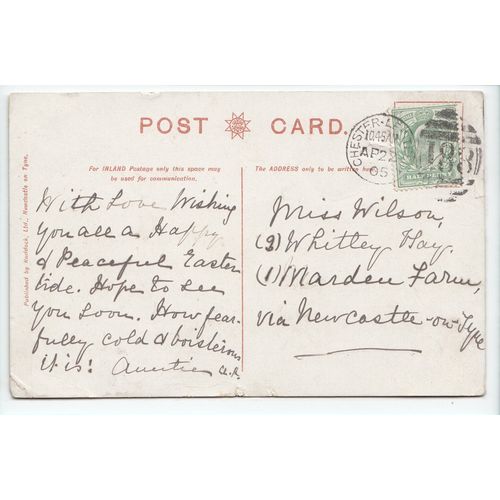 POST CARD.
For INLAND Postage only this space may
be used for communication.
The ADDRESS only to be written here
Published by Ruddock, Ltd., Newcastle on Tyne.
CHESTER-L
1045AM
AP 22
05
188
HALF PENNY
With Love Wishing
you all a Happy
& Peaceful Easter
tide. Hope to see
you soon. How fear-
fully cold & boisterous
it is! Auntie
Miss Wilson,
(2) Whitley Bay.
(1) Marden Farm,
via Newcastle-on-Tyne